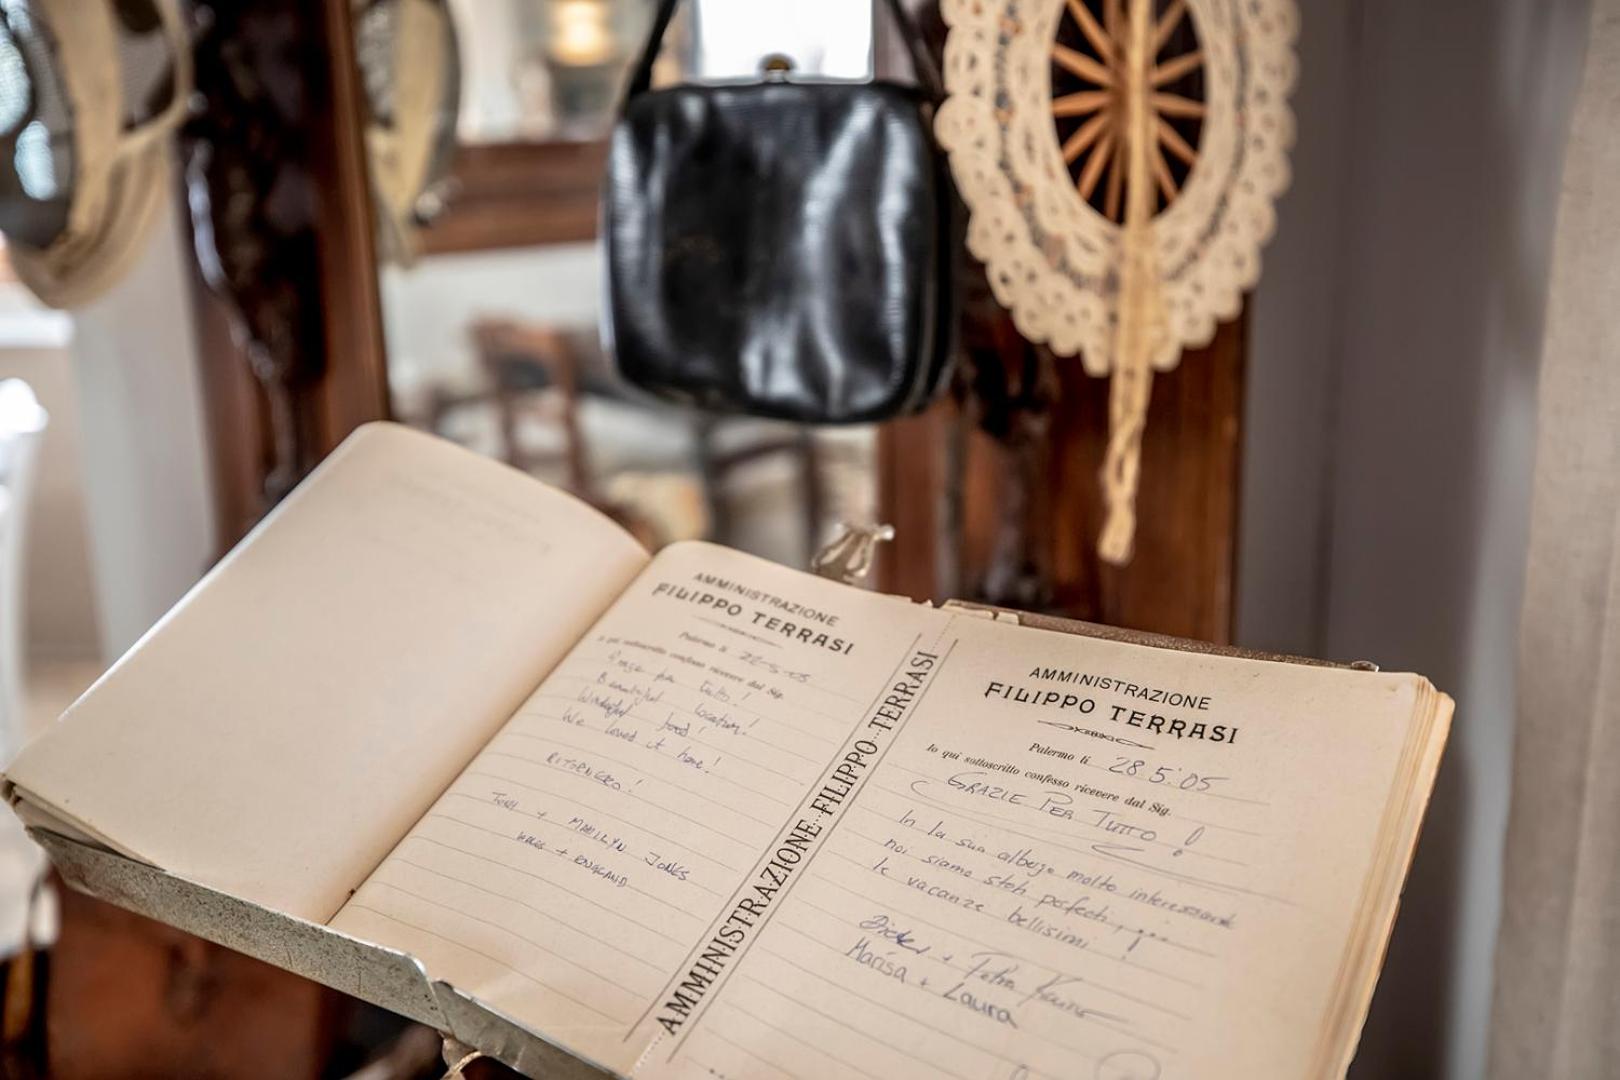 AMMINISTRAZIONE
FILIPPO TERRASI
Palermo li 22-5-05
Io qui sottoscritto confesso ricevere dal Sig.
Grazie per tutto!
Beautiful location!
Wonderful food!
We loved it here!
RITORNERO!
TONY + MARILYN JONES
WALES + ENGLAND
AMMINISTRAZIONE FILIPPO TERRASI
AMMINISTRAZIONE
FILIPPO TERRASI
Palermo li 28.5.05
Io qui sottoscritto confesso ricevere dal Sig.
GRAZIE PER TUTTO!
In la sua albergo molto interessante
noi siamo stati perfecti, ...
le vacanze bellisimi!
Dieter + Petra
Marisa + Laura